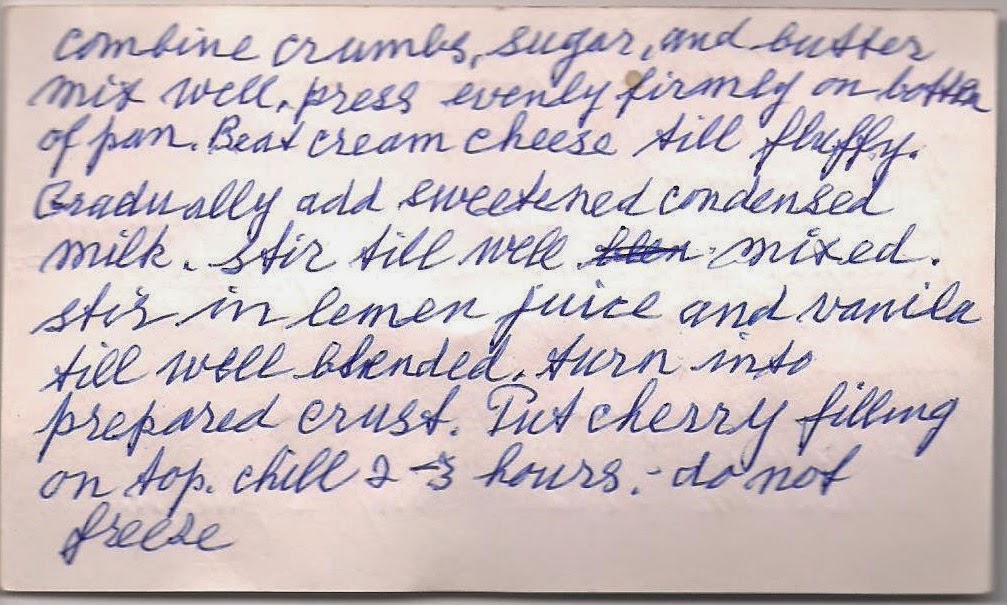 combine crumbs, sugar, and butter
mix well, press evenly firmly on bottom
of pan. Beat cream cheese till fluffy.
Gradually add sweetened condensed
milk. stir till well mixed.
stir in lemen juice and vanila
till well blended. turn into
prepared crust. Put cherry filling
on top. chill 2-3 hours. - do not
freeze